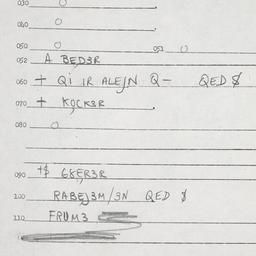 030 O
040 O
050 O 051 O
052 A BEDƎR
060 + Qi IR ALEJN Q– QED $
070 + KOCKƎR
080 O
090 +$ GKERƎR
100 RABEJƎM/ƎN QED $
110 FRUMƎ